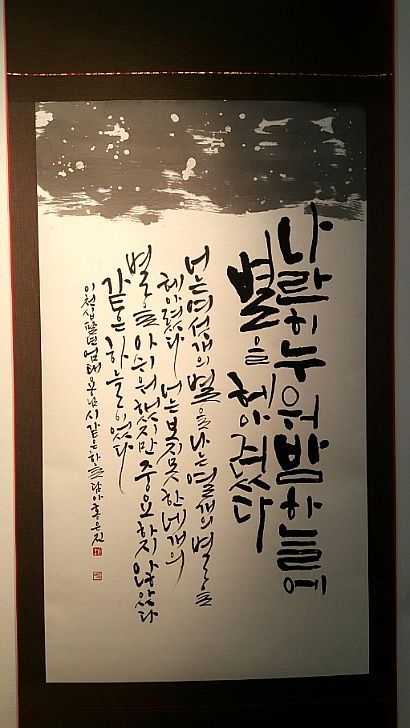 나란히 누워 밤하늘에
별을 헤아렸다
너는 여섯개의 별을 나는 열개의 별을
헤아렸다 너는 보지못한 네개의
별을 아쉬워했지만 중요하지 않았다
같은 하늘이었다
이천십팔년 엄태용님 시 같은하늘 담아